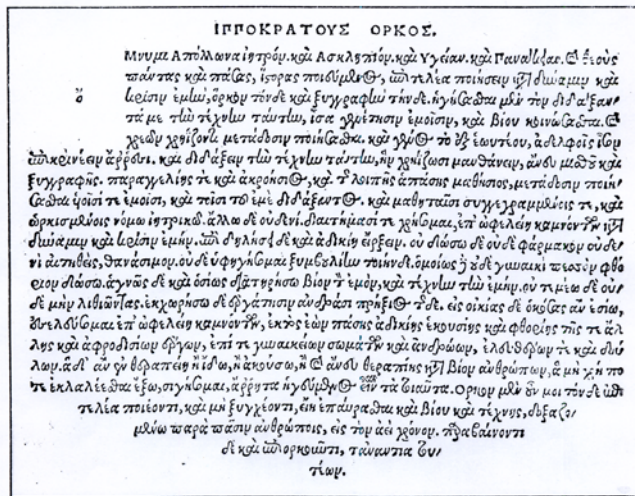 ΙΠΠΟΚΡΑΤΟΥΣ ΟΡΚΟΣ.
Μνυμι Απόλλωνα ἰητρὸν, καὶ Ασκληπιὸν, καὶ Υγείαν, καὶ Πανάκειαν, καὶ θεοὺς
πάντας καὶ πάσας, ἵστορας ποιεύμενος, ἐπιτελέα ποιήσειν κατὰ δύναμιν καὶ
ὅ κρίσιν ἐμὴν, ὅρκον τόνδε καὶ ξυγγραφὴν τήνδε. ἡγήσασθαι μὲν τὸν διδάξαν
τά με τὴν τέχνην ταύτην, ἴσα γενέτησιν ἐμοῖσιν, καὶ βίου κοινώσασθαι. καὶ
χρεῶν χρηΐζοντι μετάδοσιν ποιήσασθαι. καὶ γένος τὸ ἐξ ἑωυτέου, ἀδελφοῖς ἶσον
ἐπικρινέειν ἄῤῥεσι. καὶ διδάξειν τὴν τέχνην ταύτην, ἢν χρηΐζωσι μανθάνειν, ἄνευ μισθοῦ καὶ
ξυγγραφῆς. παραγγελίης τε καὶ ἀκροήσιος, καὶ τῆς λοιπῆς ἁπάσης μαθήσιος, μετάδοσιν ποιή
σασθαι υἱοῖσί τε ἐμοῖσι, καὶ τοῖσι τοῦ ἐμὲ διδάξαντος, καὶ μαθηταῖσι συγγεγραμμένοις τε, καὶ
ὡρκισμένοις νόμῳ ἰητρικῷ. ἄλλῳ δὲ οὐδενί. διαιτήμασί τε χρήσομαι, ἐπ' ὠφελείῃ καμνόντων κατὰ
δύναμιν καὶ κρίσιν ἐμήν. ἐπὶ δηλήσει δὲ καὶ ἀδικίῃ εἴρξειν. οὐ δώσω δὲ οὐδὲ φάρμακον οὐδε
νὶ αἰτηθεὶς, θανάσιμον. οὐδὲ ὑφηγήσομαι ξυμβουλίην τοιήνδε. ὁμοίως δὲ οὐδὲ γυναικὶ πεσσὸν φθό
ριον δώσω. ἁγνῶς δὲ καὶ ὁσίως διατηρήσω βίον τὸν ἐμὸν, καὶ τέχνην τὴν ἐμήν. οὐ τεμέω δὲ οὐ
δὲ μὴν λιθιῶντας. ἐκχωρήσω δὲ ἐργάτῃσιν ἀνδράσι πρήξιος τῆσδε. εἰς οἰκίας δὲ ὁκόσας ἂν ἐσίω,
ἐσελεύσομαι ἐπ' ὠφελείῃ καμνόντων, ἐκτὸς ἐὼν πάσης ἀδικίης ἑκουσίης καὶ φθορίης τῆς τε ἄλ
λης καὶ ἀφροδισίων ἔργων, ἐπί τε γυναικείων σωμάτων καὶ ἀνδρῴων, ἐλευθέρων τε καὶ δού
λων. ἃ δ' ἂν ἐν θεραπείῃ ἢ ἴδω, ἢ ἀκούσω, ἢ καὶ ἄνευ θεραπείης κατὰ βίον ἀνθρώπων, ἃ μὴ χρή πο
τε ἐκλαλέεσθαι ἔξω, σιγήσομαι, ἄῤῥητα ἡγεύμενος εἶναι τὰ τοιαῦτα. Ορκον μὲν οὖν μοι τόνδε ἐπι
τελέα ποιέοντι, καὶ μὴ ξυγχέοντι, εἴη ἐπαύρασθαι καὶ βίου καὶ τέχνης, δοξαζο
μένῳ παρὰ πᾶσιν ἀνθρώποις, εἰς τὸν ἀεὶ χρόνον. παραβαίνοντι
δὲ καὶ ἐπιορκοῦντι, τἀναντία του
τέων.